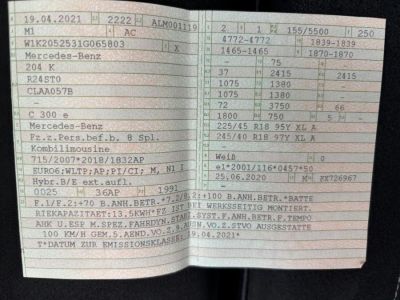 19.04.2021 2222 ALM001119
M1 AC
W1K2052531G065803 X
Mercedes-Benz
204 K
R24ST0
CLAA057B
-
C 300 e
Mercedes-Benz
Fz.z.Pers.bef.b. 8 Spl.
Kombilimousine
715/2007*2018/1832AP
EURO6;WLTP;AP;PI/CI; M, N1 I
Hybr.B/E ext.aufl.
0D25 36AP 1991
2 1 155/5500 250
4772-4772 1839-1839
1465-1465 1870-1870
- 75
37 2415 2415
1075 1380
1075 1380 -
72 3750 66
1800 750 5 -
225/45 R18 95Y XL A
245/40 R18 97Y XL A
-
Weiß 0
e1*2001/116*0457*50
25.06.2020 M FX726967
F.1/F.2:+70 B.ANH.BETR.*7.2/8.2:+100 B.ANH.BETR.*BATTE
RIEKAPAZITAET:13.5KWH*FZ IST BEI WERKSSEITIG MONTIERT.
AHK U ESP M.SPEZ.FAHRDYN.STABI.SYST.F.ANH.BETR.F.TEMPO
100 KM/H GEM.5.AEND.VO.Z.9.AUSN.VO.Z.STVO AUSGESTATTE
T*DATUM ZUR EMISSIONSKLASSE: 19.04.2021*